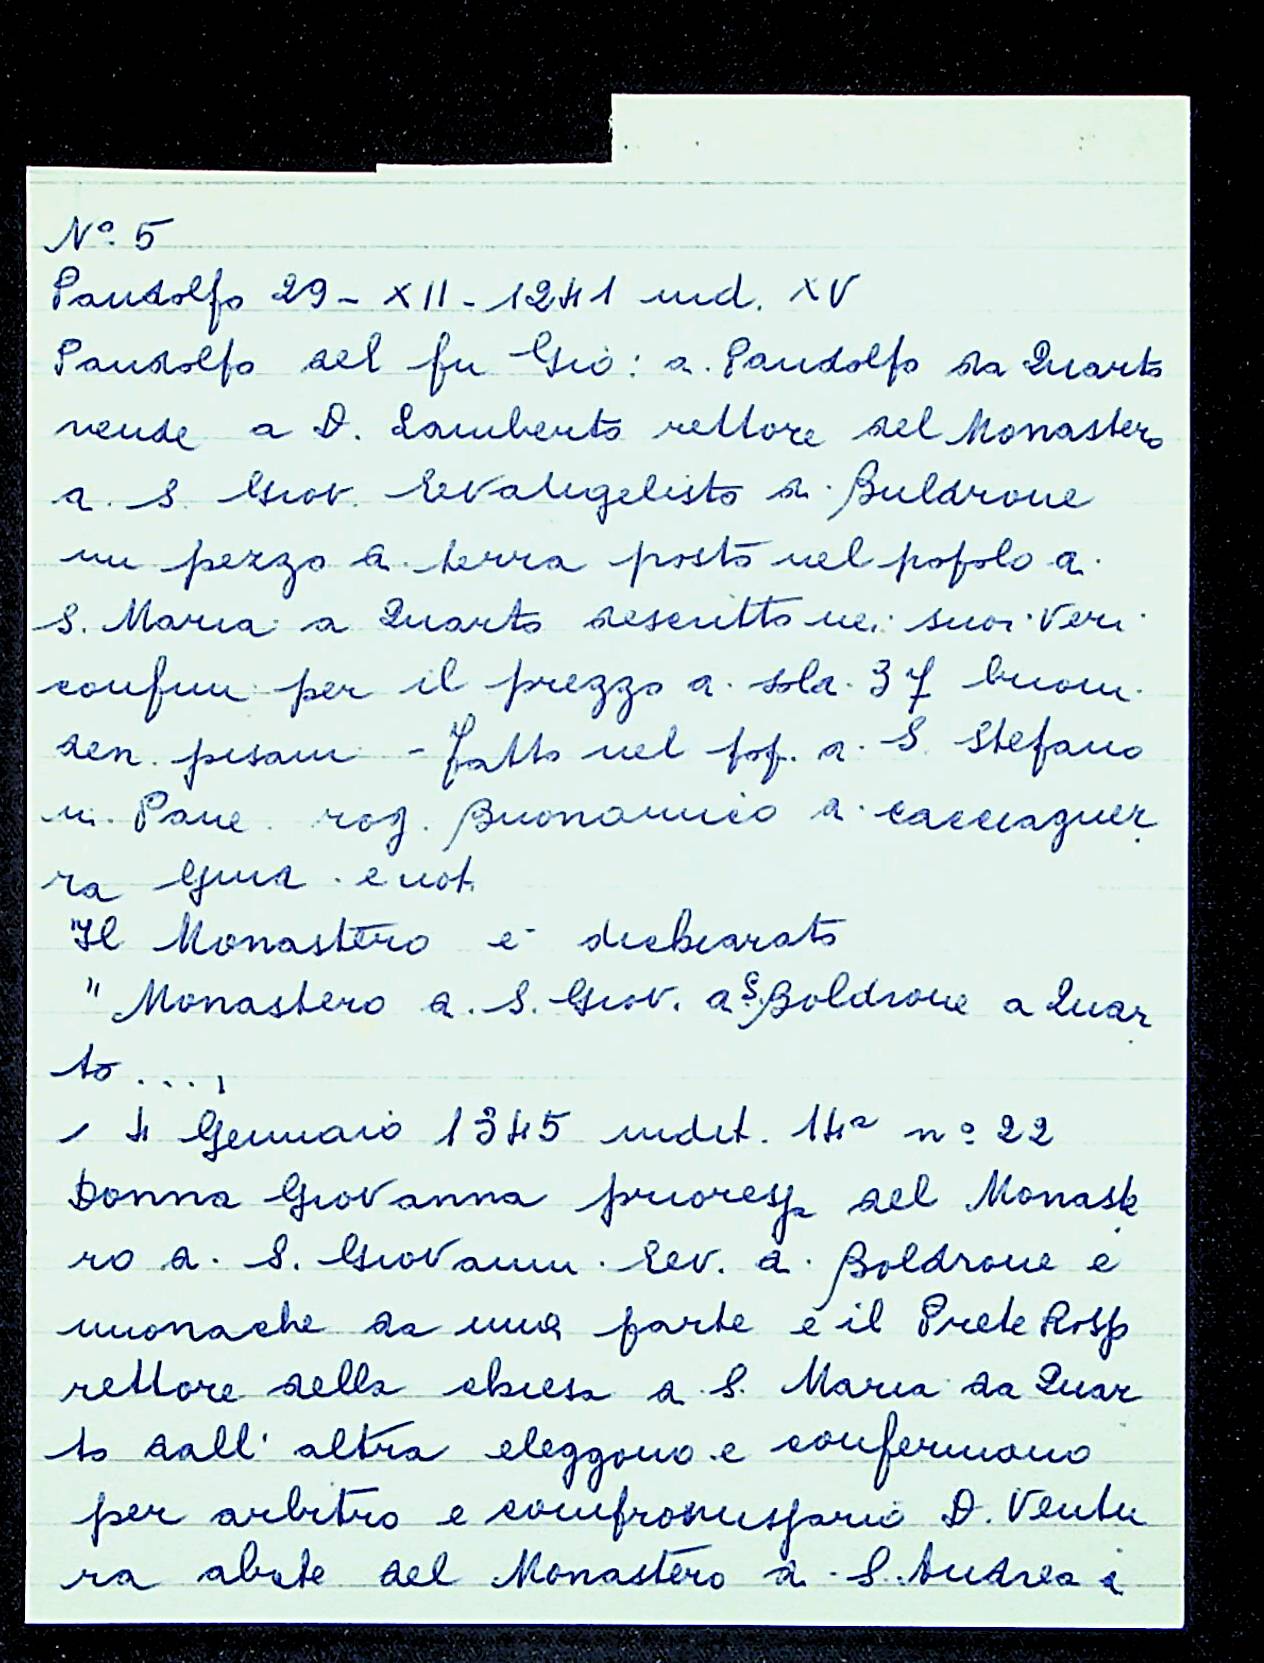 Nº. 5
Pandolfo 29 - XII - 1241 ind. XV
Pandolfo del fu Gio: di Pandolfo da Quarto
vende a D. Lamberto rettore del Monastero
di S. Giov. Evangelista di Buldrone
un pezzo di terra posto nel popolo di
S. Maria a Quarto descritto nei suoi veri
confini per il prezzo di sold. 37 buoni
den. pisani - fatto nel pop. di S. Stefano
in Pane rog. Buonamico di Cacciaguer
ra Giud. e not.
"Il Monastero è dichiarato
" Monastero di S. Giov. di Boldrone a Quar
to ....
4 Gennaio 1345 indit. 14ª nº 22
Donna Giovanna prioressa del Monaste
ro di S. Giovanni Ev. di Boldrone e
monache da una parte e il Prete
rettore della chiesa di S. Maria da Quar
to dall' altra eleggono e confermono
per arbitro e compromissario D. Ventu
ra abate del Monastero di S. Andrea